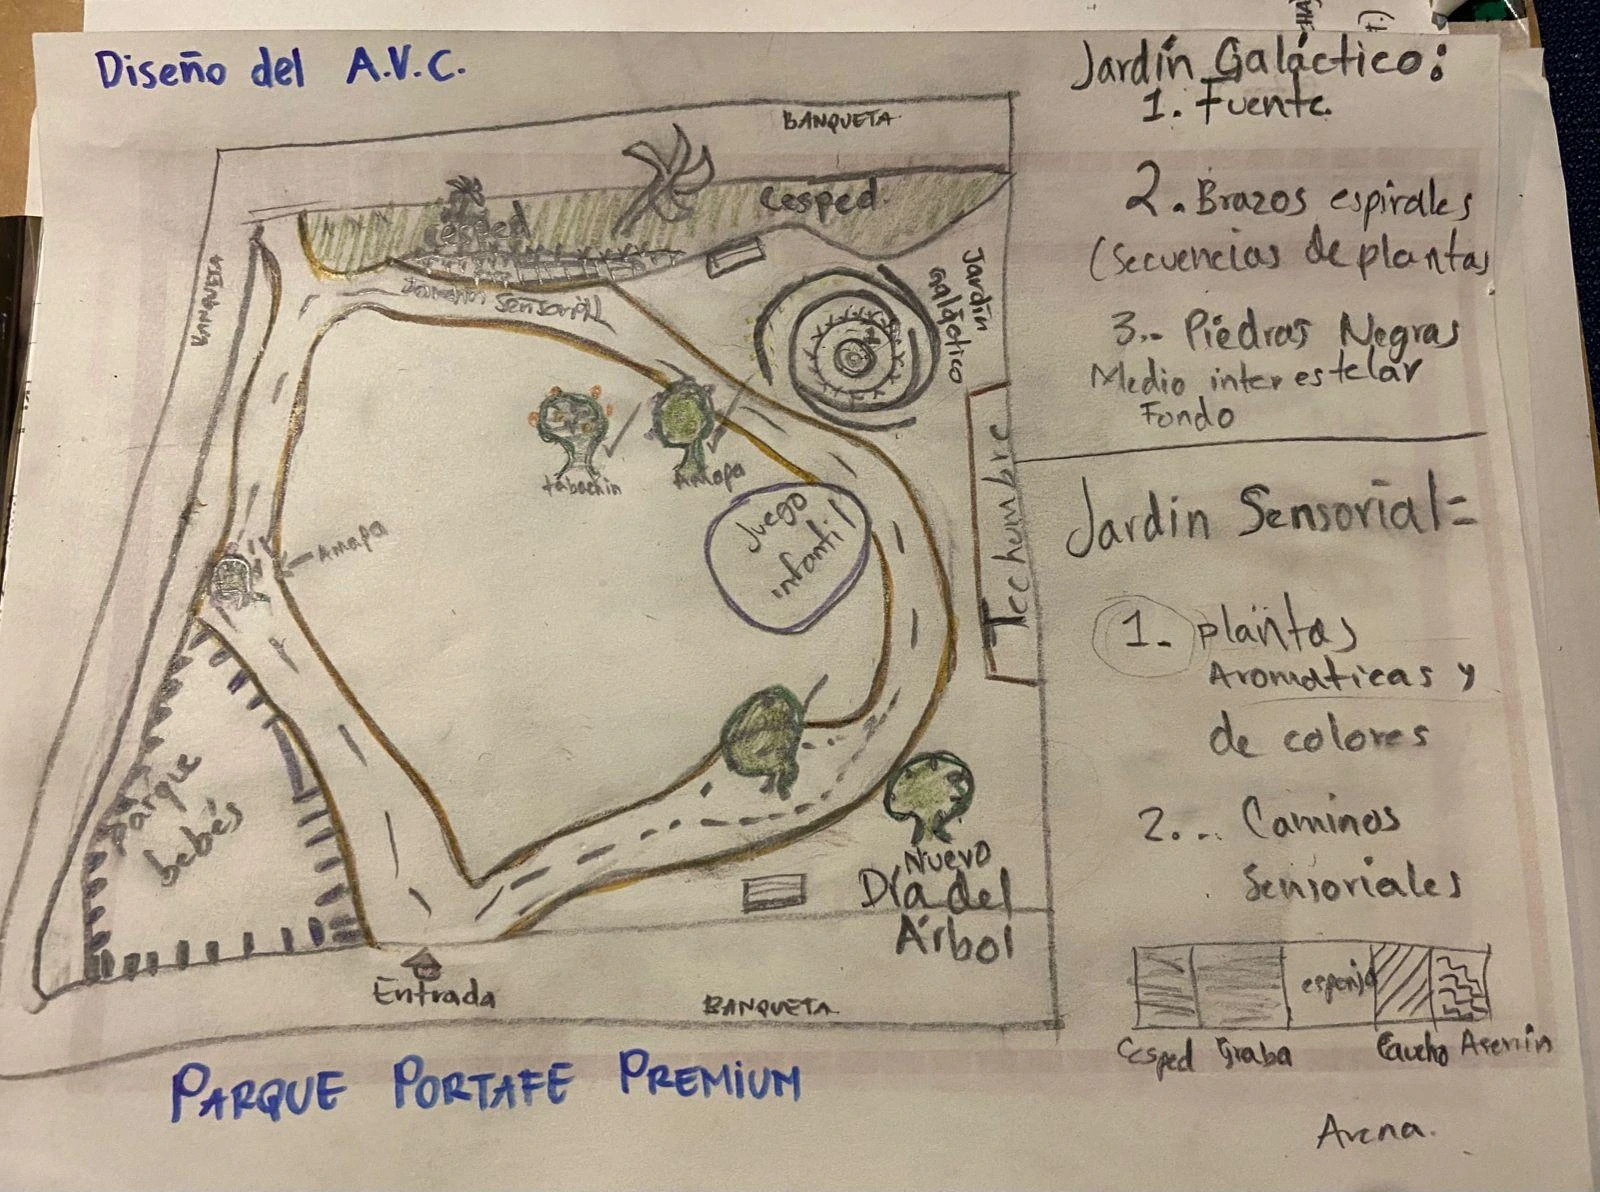 Diseño del A.V.C.
BANQUETA
Cesped
Cesped
BANQUETA
Sensorial
Jardín
Galáctico
tabachin
Amapa
Juego
infantil
Techumbre
Amapa
Parque
bebés
Nuevo
Día del
Árbol
Entrada
BANQUETA
PARQUE PORTAFE PREMIUM
Jardín Galáctico:
1. Fuente.
2. Brazos espirales
(Secuencias de plantas
3.. Piedras Negras
Medio interestelar
Fondo
Jardín Sensorial=
1- plantas
Aromáticas y
de colores
2... Caminos
Sensoriales
esponja
Cesped Graba Caucho Aserrin
Arena.